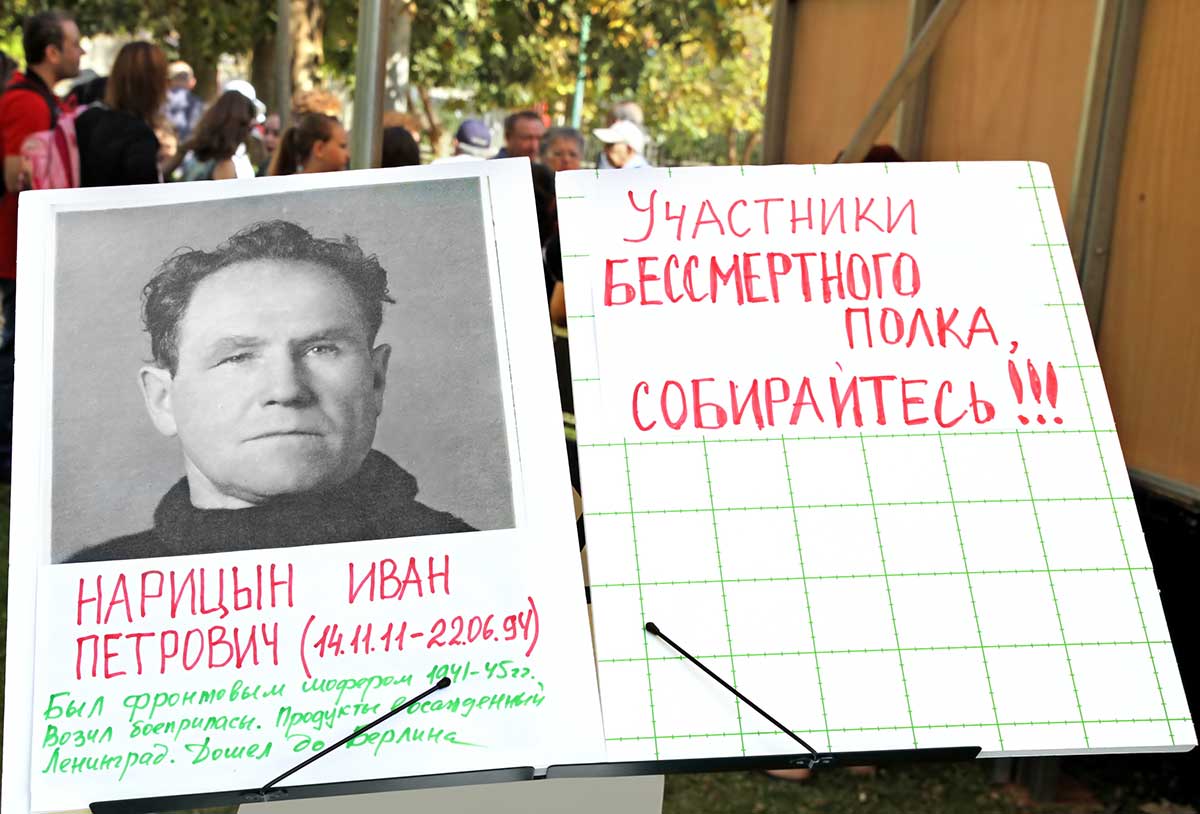 НАРИЦЫН ИВАН
ПЕТРОВИЧ (14.11.11-22.06.94)
Был фронтовым шофером 1941-45гг.
Возил боеприпасы. Продукты в осажденный
Ленинград. Дошел до Берлина
УЧАСТНИКИ
БЕССМЕРТНОГО
ПОЛКА,
СОБИРАЙТЕСЬ!!!